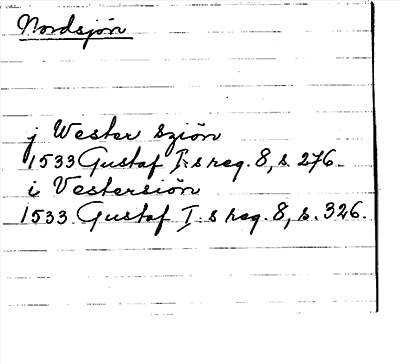 Nordsjön
j Wester Sziön
1533 Gustaf I:s reg. 8, s. 276.
i Vestersiön
1533 Gustaf I:s reg. 8, s. 326.